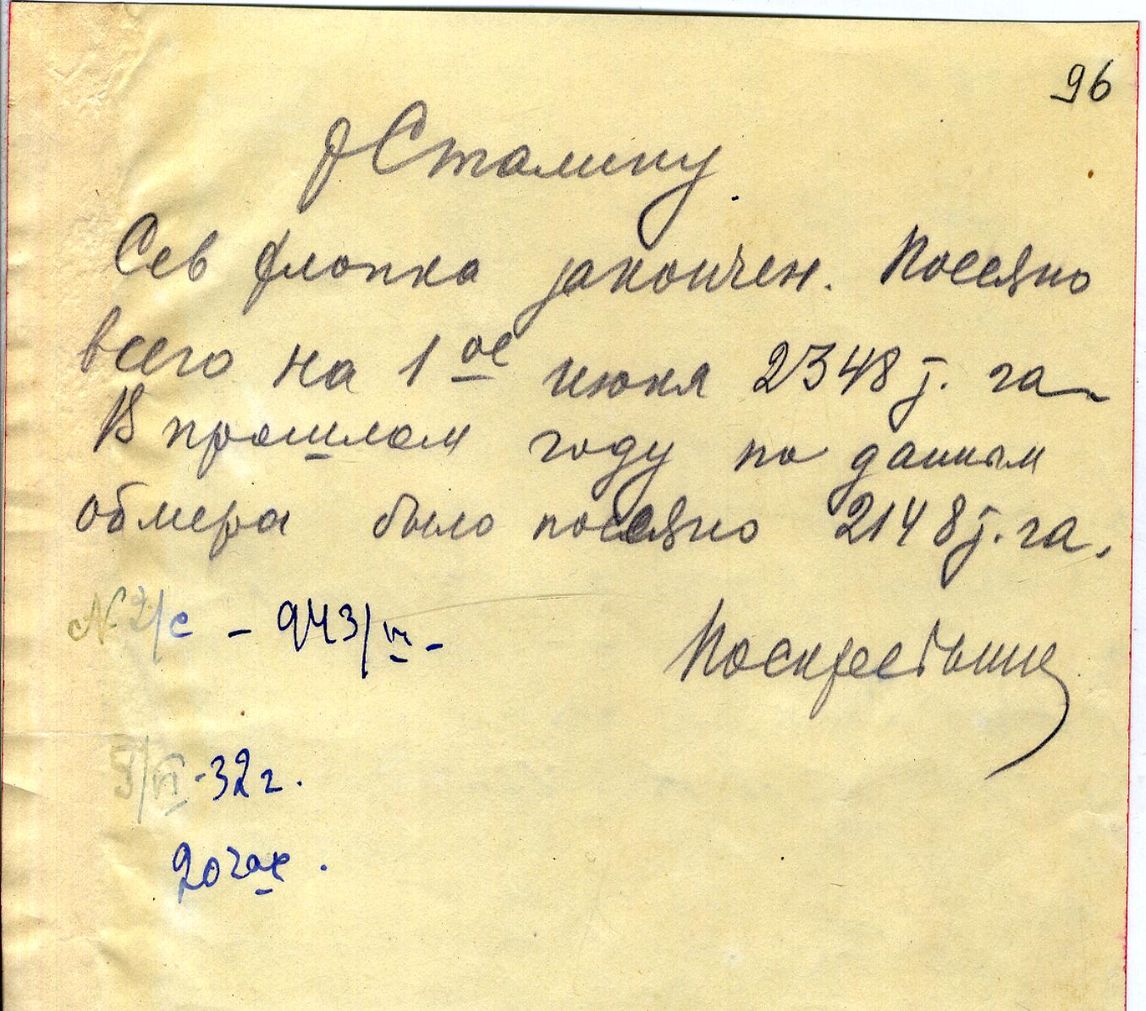 96
т Сталину
Сев хлопка закончен. Посеяно
всего на 1ое июня 2348 т. га
В прошлом году по данным
обмера было посеяно 2148 т. га.
№ 2/с – 943/vi –
Поскребышев
3/VI-32 г.
20 час.